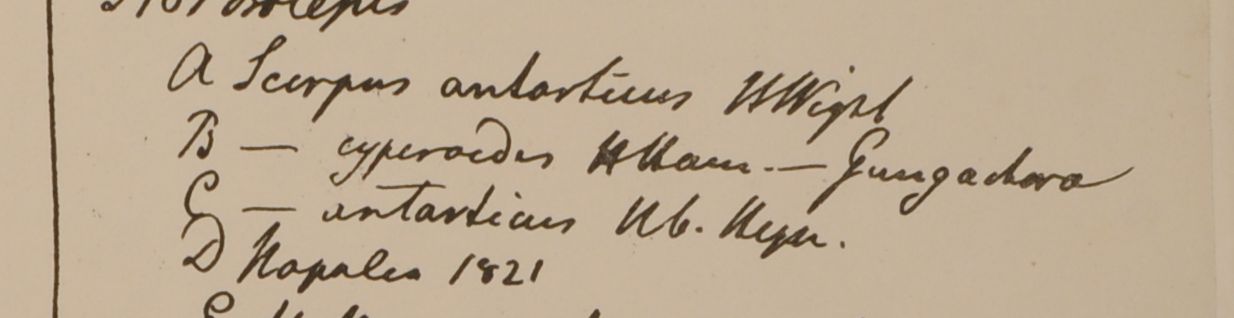 Isolepis
A Scirpus antarticus HWight
B — cyperoides HHam. — Gungachora
C — antarticus Hb. Heyn.
D Napalea 1821